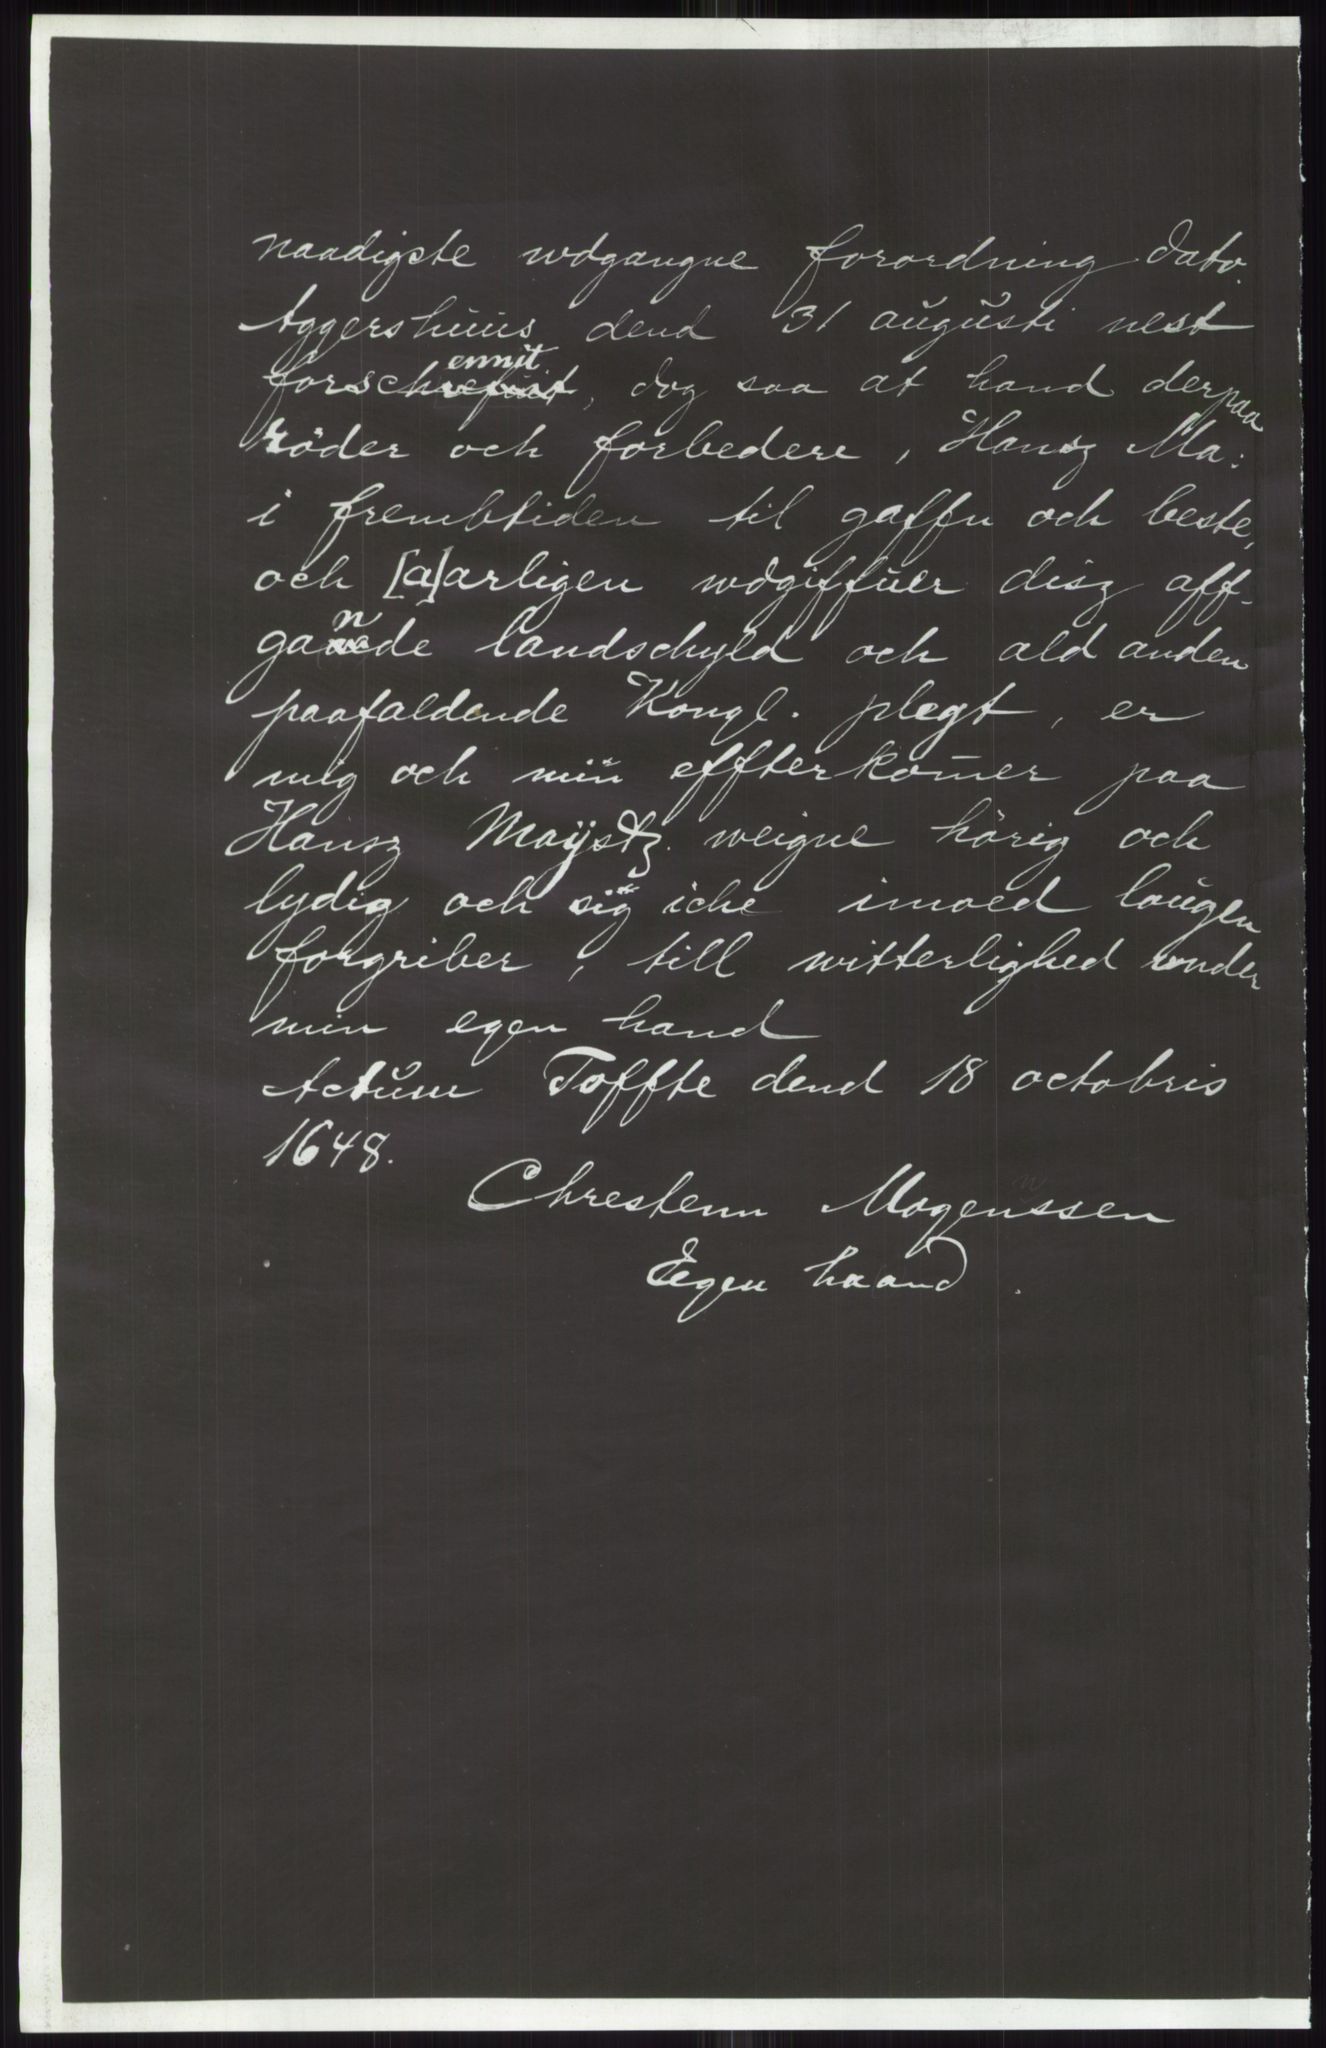 naadigste wdgangne forordning dato.
Aggershuus dend 31 augusti nest
forschennit, dog saa at hand derpaa
röder och forbedere, Hansz Ma:
i frembtiden til gaffn och beste,
och [a]arligen wdgiffuer disz aff-
gande landschyld och ald anden
paafaldende Kongl. plegt, er
mig och min effterkomer paa
Hansz Maÿstz. weigne hörig och
lydig och sig iche imoed laugen
forgriber, till witterlighed under
min egen hand
Actum Toffte dend 18 octobris
1648.
Chrestenn Mogenssen
Eegen haand.